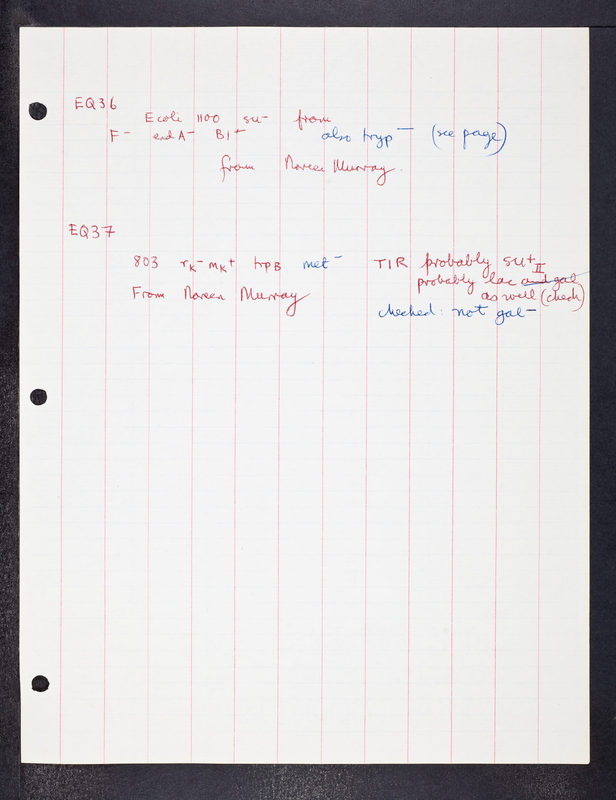 EQ36
Ecoli 1100 su- from
F- endA- B1+ also tryp- (see page)
from Noreen Murray.
EQ37
803 rK- mK+ trpB met- T1R probably su+II
probably lac and gal
From Noreen Murray as well (check)
checked: not gal-